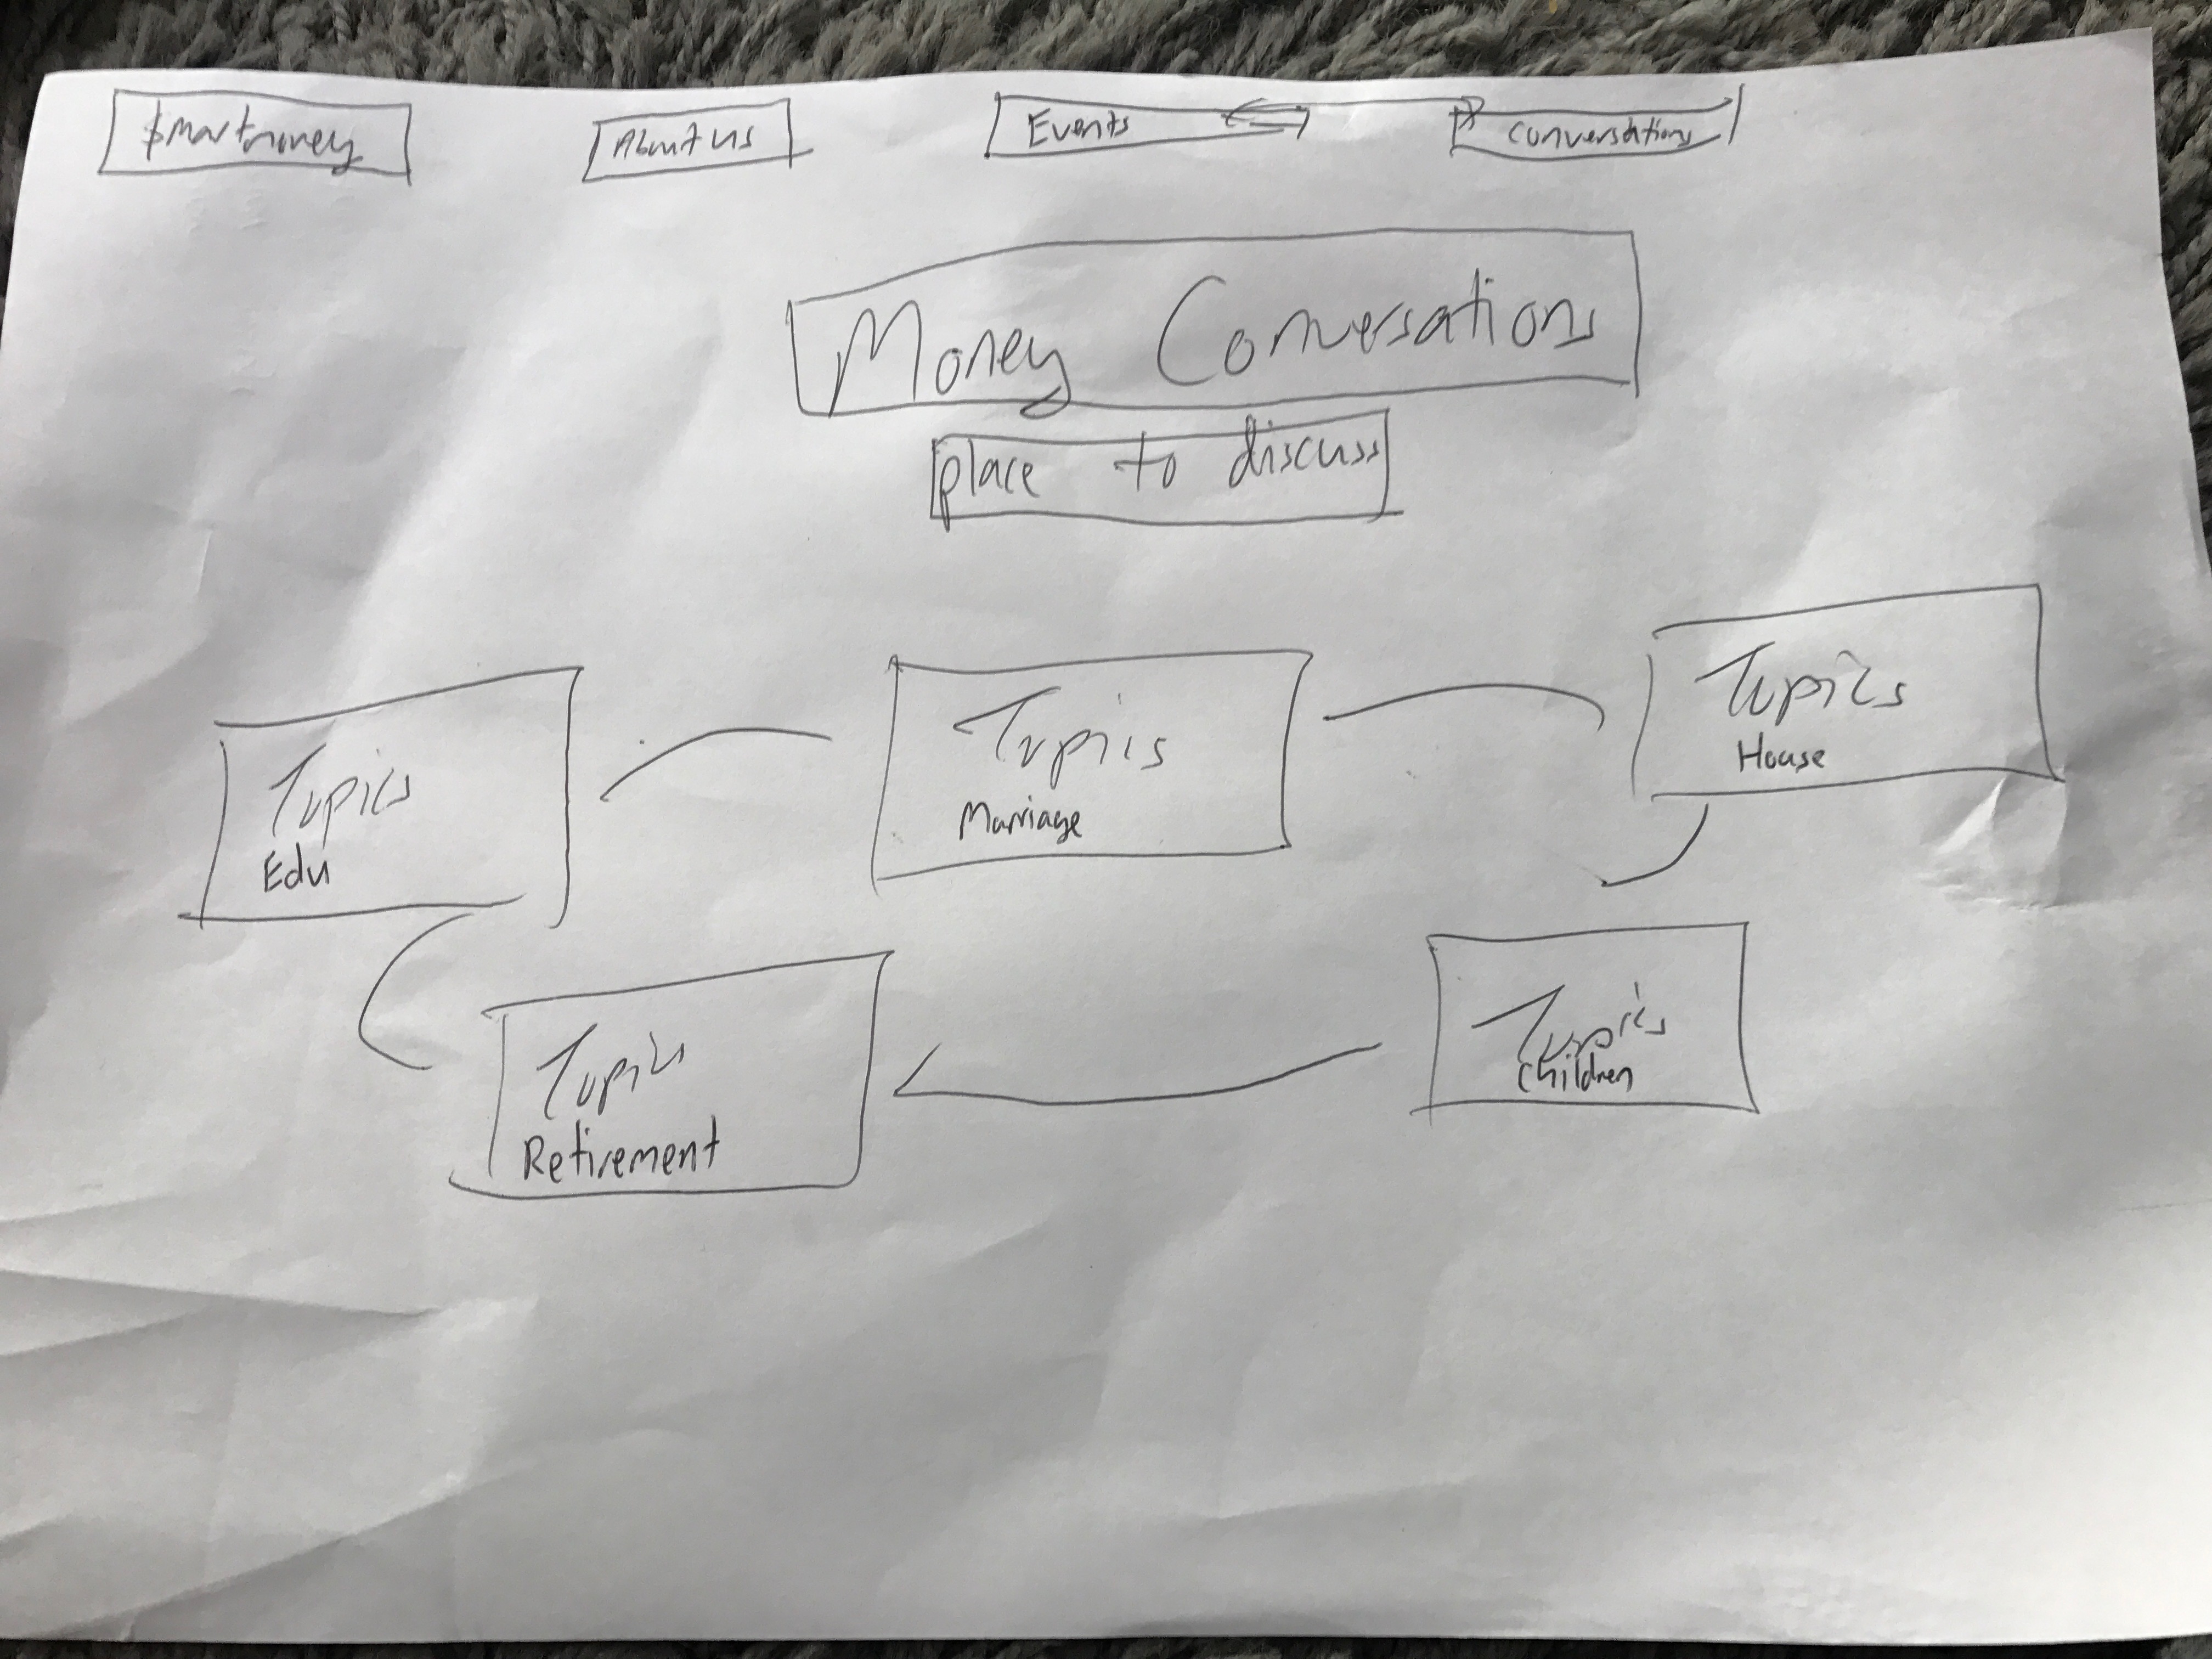 $martmoney
About us
Events
Conversations
Money Conversations
place to discuss
Topics
Edu
Topics
Marriage
Topics
House
Topics
Retirement
Topics
Children